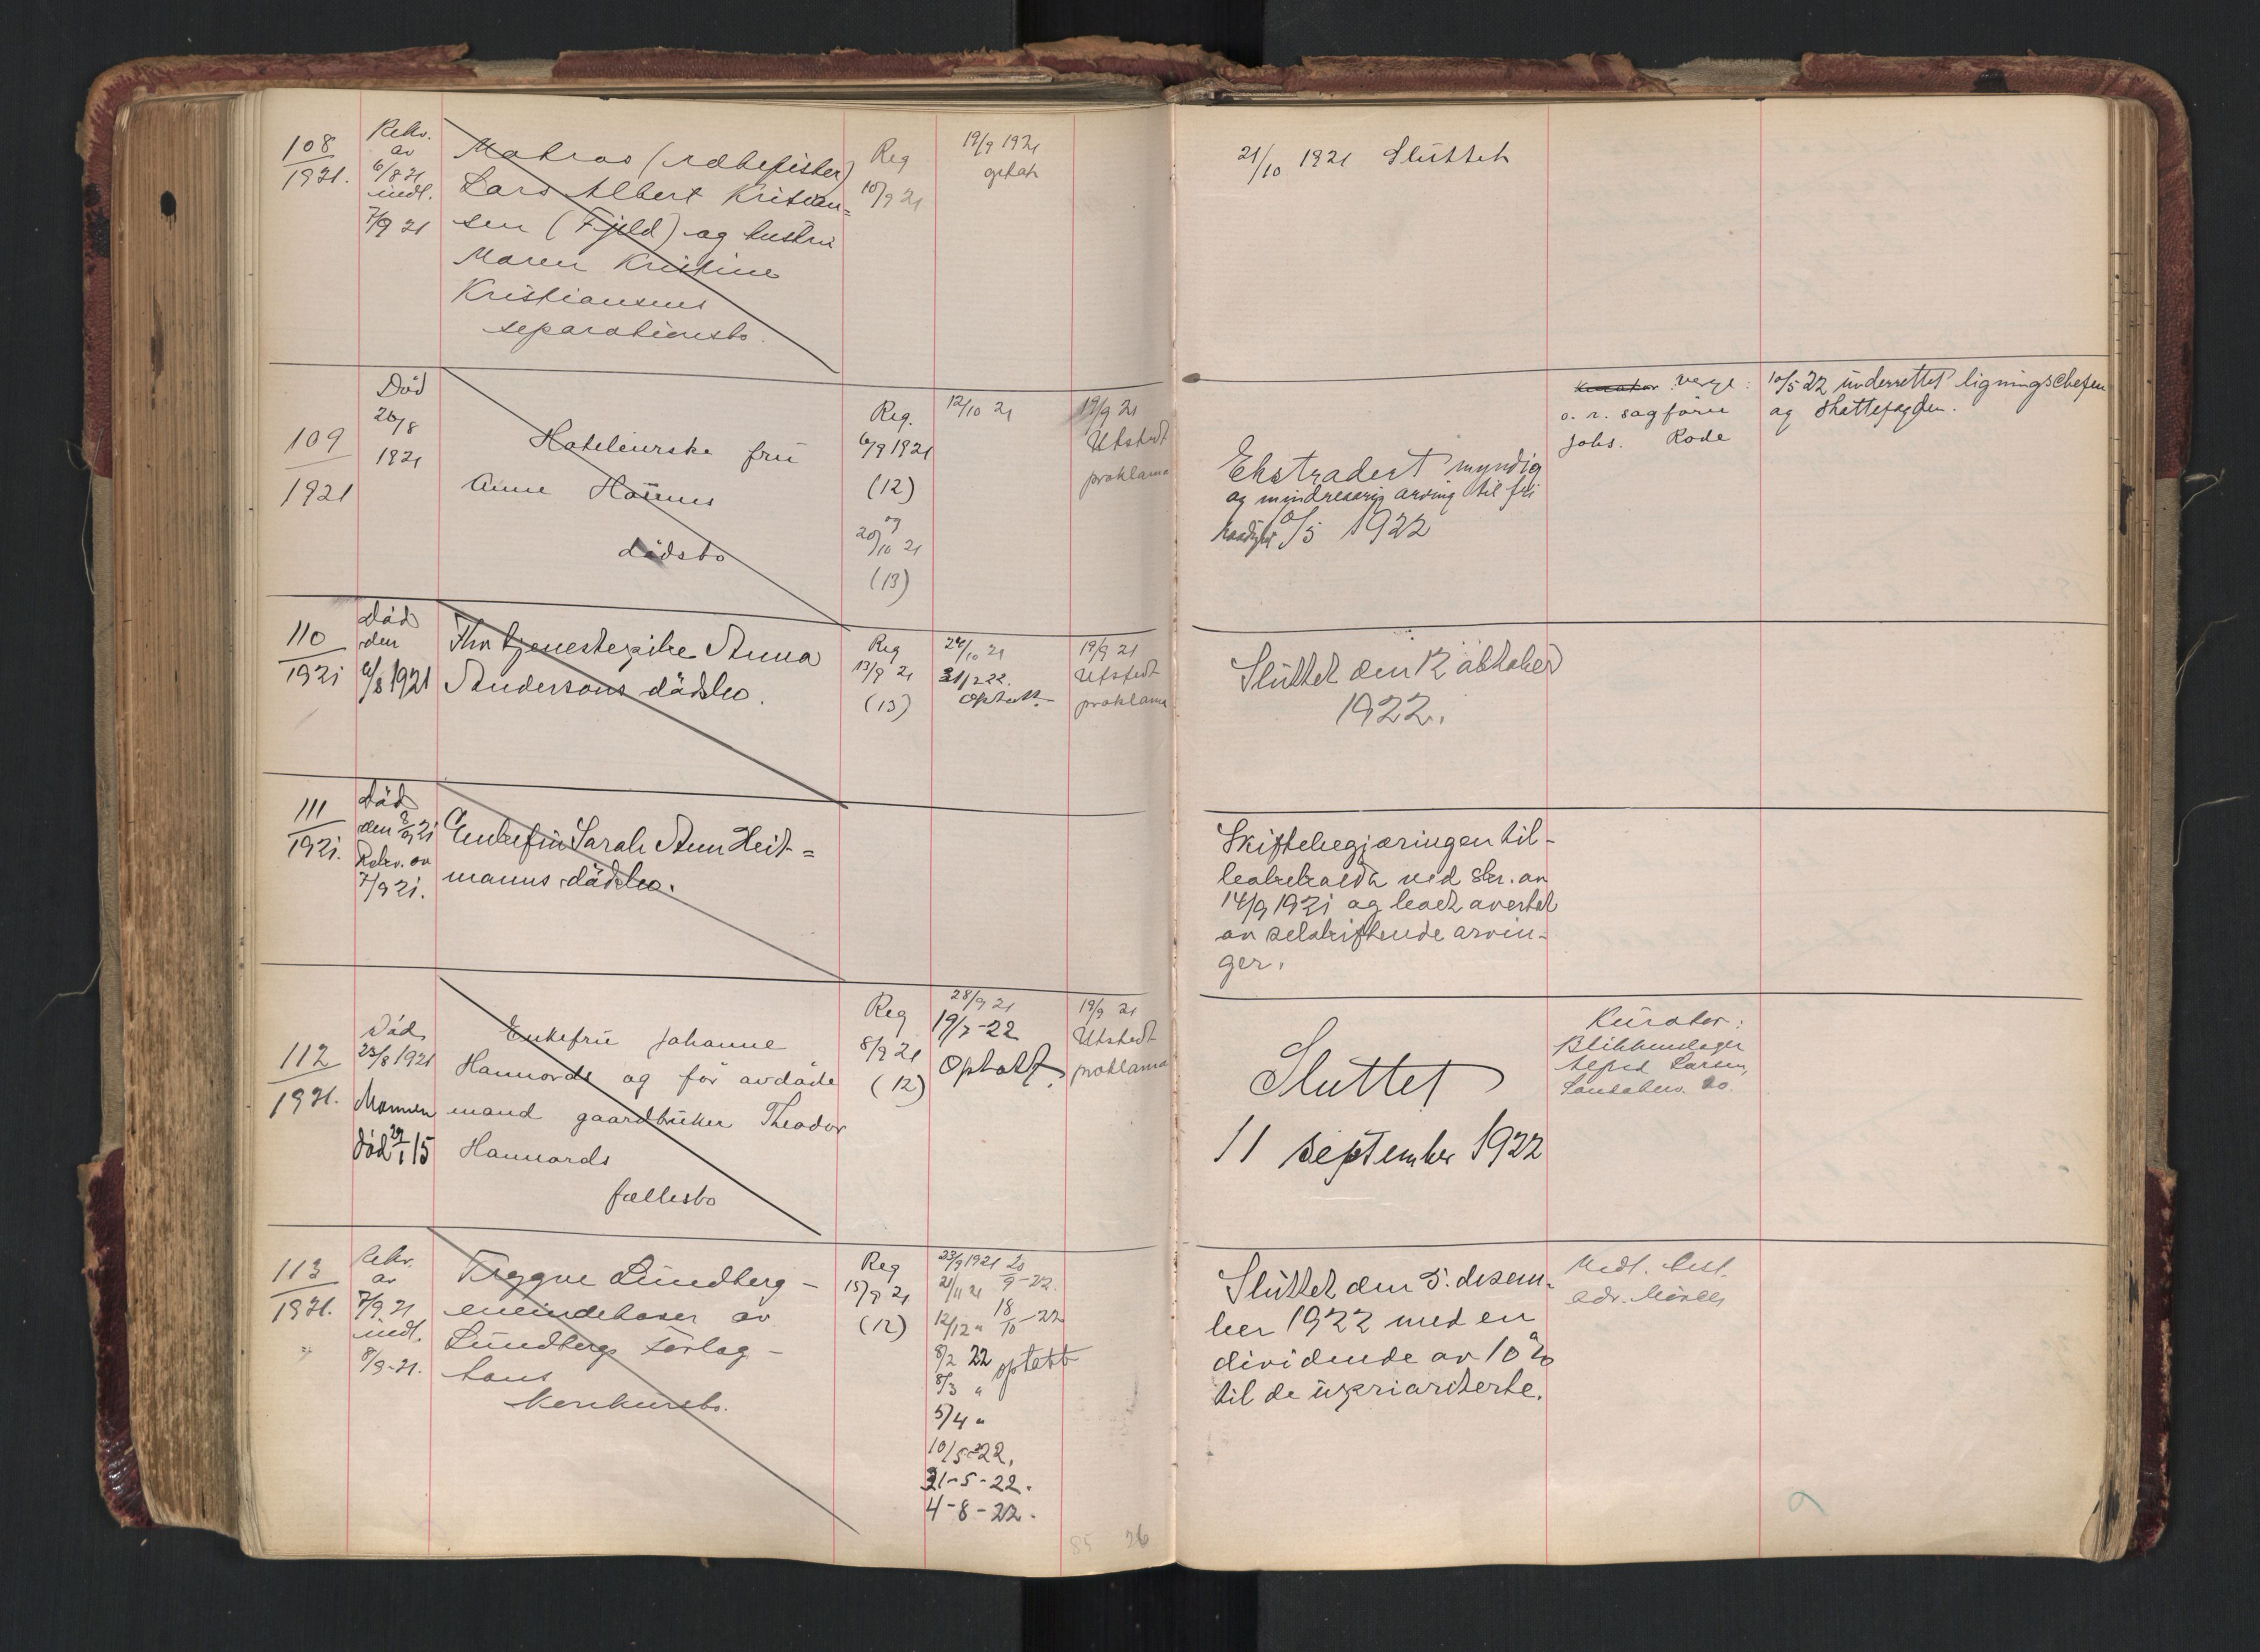 108
1921.
Rekv.
av
6/8 21
indl.
7/9 21
Matros (
Lars Albert Kristian=
sen (Fjeld) og hustru
Maren Kristine
Kristiansens
separationsbo.
Reg
10/9 21
19/9 1921
21/10 1921 Sluttet
109
1921
Död
26/8
1921
frü
Anne
dödsbo
Reg.
6/9 1921
(12)
og
20/10 21
(13)
12/10 21
19/9 21
Utstedt
proklama
Ekstradert myndig
og mindreaarig arving til fri
1922
Kurator verge:
o. r. sagförer
Johs. Rode
10/5 22 underrettet ligningschefen
og skattefogden.
110
1921
Död
den
6/8 1921
Fhv tjenestepike Anna
Andersons dödsbo.
Reg
13/9 21
(13)
24/10 21
optatt.
19/9 21
Utstedt
proklama
Sluttet den 12 oktober
1922.
111
1921.
Död
den 2/9 21
Rekv. av
7/9 21.
Enkefru Sarah Ann Heit=
manns dödsbo.
Skiftebegjæringen til-
bakekaldt ved skr. av
14/9 1921 og boet overtat
av selvskiftende arvin-
ger.
112
1921.
Död
23/8 1921
Mannen
död 15
Enkefrü Johanne
og för avdöde
mand gaardbruker Theodor
fællesbo
Reg
8/9 21
(12)
28/9 21
19/7-22
Optatt.
19/9 21
Utstedt
proklama
Sluttet
11 september 1922
Kurator:
Blikkenslager
Alfred Larsen,
113
1921.
Rekv.
av
7/9 21
indl.
8/9-21.
Trygve Lundberg -
eneindehaver av
Lundbergs forlag -
hans
konkursbo.
Reg
15/9 21
(12)
23/9 1921
21/11 21
12/12 "
8/2 22
8/3 "
5/4 "
10/5-22.
31-5-22.
4-8-22.
20/9-22.
18/10-22
optatt
Sluttet den 5. desem-
ber 1922 med en
dividende av 10 %
til de upriorterte.
Midl. best.
adv.
85 26